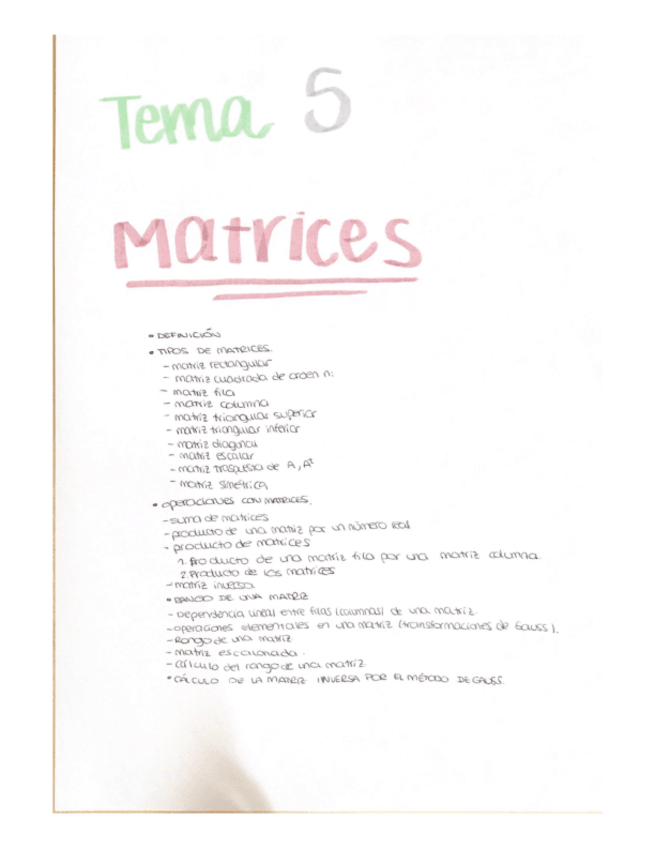 Tema 5
Matrices
• DEFINICIÓN
• TIPOS DE MATRICES.
- matriz rectangular
- matriz cuadrada de orden n:
- matriz fila
- matriz columna
- matriz triangular superior
- matriz triangular inferior
- matriz diagonal
- matriz escalar
- matriz traspuesta de A, Aᵗ
- matriz simétrica
• operaciones con MATRICES.
- suma de matrices
- producto de una matriz por un número real
- producto de matrices
1. Producto de una matriz fila por una matriz columna.
2. Producto de las matrices
- matriz inversa
• RANGO DE UNA MATRIZ
- Dependencia lineal entre filas (columnas) de una matriz.
- operaciones elementales en una matriz (transformaciones de Gauss).
- Rango de una matriz
- matriz escalonada.
- cálculo del rango de una matriz
• CÁLCULO DE LA MATRIZ INVERSA POR EL MÉTODO DE GAUSS.